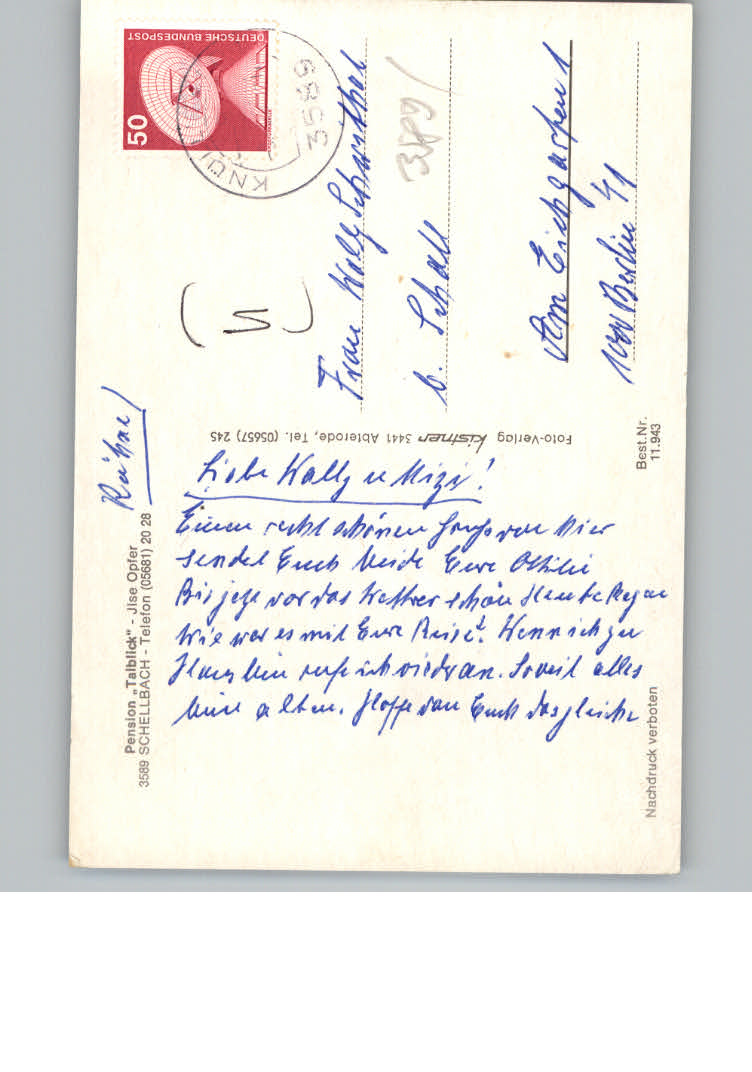 Pension „Talblick" - Jlse Opfer
3589 SCHELLBACH - Telefon (05681) 20 28
Liebe Wally u Mizi!
Einen recht schönen Gruß von hier
sendet Euch beide Eure Ottilie
Bis jetzt war das Wetter schön Heute Regen
Wie war es mit Eure Reise? Wenn ich zu
Haus bin rufe ich wieder an. Soweit alles
beim alten. Hoffe von Euch das gleiche
Foto-Verlag kistner 3441 Abterode, Tel. (05657) 245
Best.Nr.
11.943
Nachdruck verboten
DEUTSCHE BUNDESPOST
50
3589
KNÜ
Frau Wally
b. Schall
Am Eichgarten 1
1000 Berlin 41